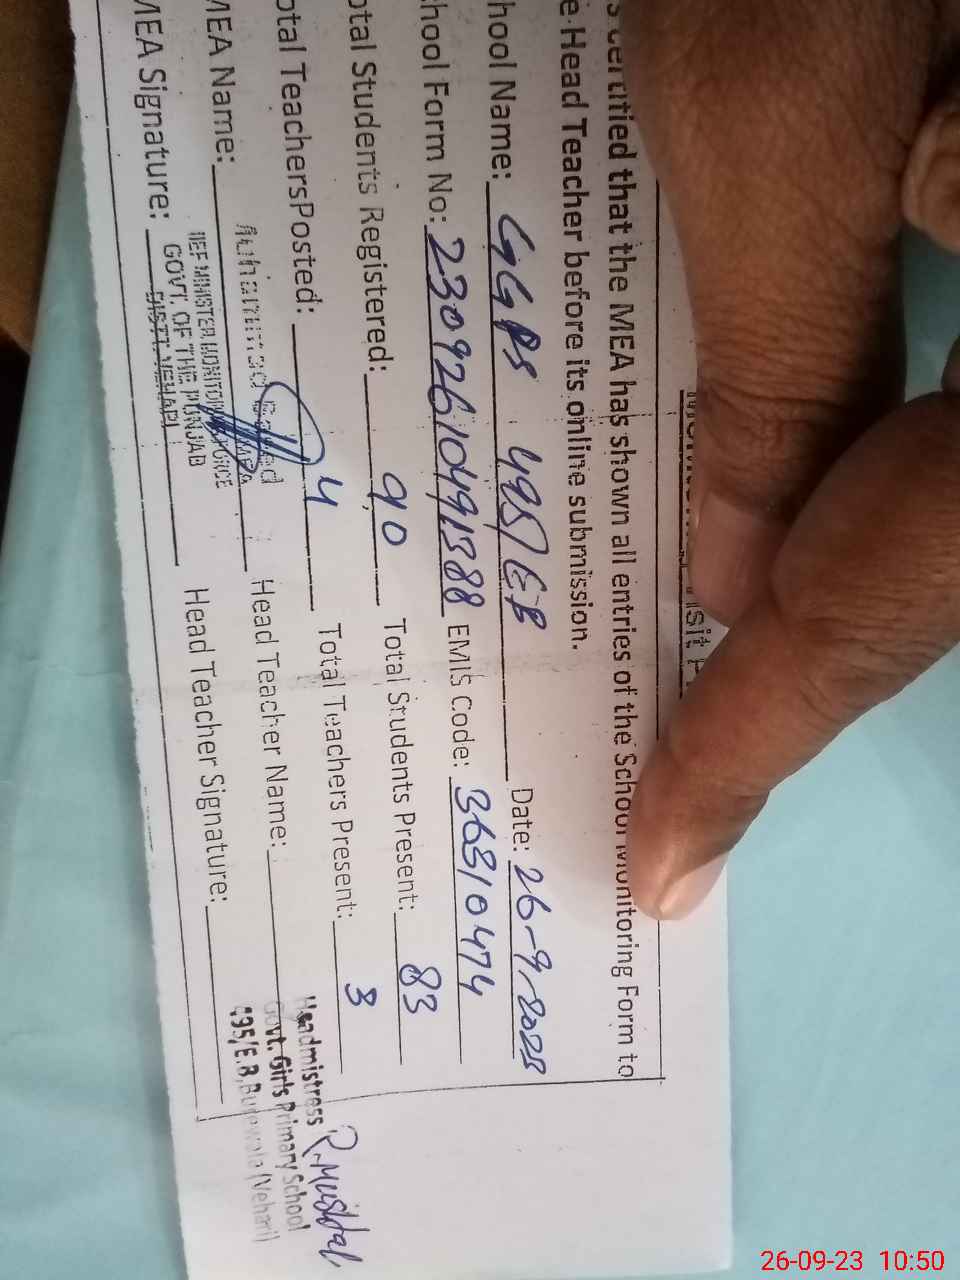 Monitoring Visit
s certified that the MEA has shown all entries of the School Monitoring Form to
e Head Teacher before its online submission.
hool Name: GGPS 495/EB Date: 26-9-2023
hool Form No: 23092610491388 EMIS Code: 36310474
otal Students Registered: 90 Total Students Present: 83
otal TeachersPosted: 4 Total Teachers Present: 3
MEA Name: Head Teacher Name:
MEA Signature: Head Teacher Signature:
IEF MINISTER MONITORING FORCE
GOVT. OF THE PUNJAB
DISTT. VEHARI
Headmistress
Govt. Girls Primary School
495/E.B, Burewala (Vehari)
26-09-23 10:50